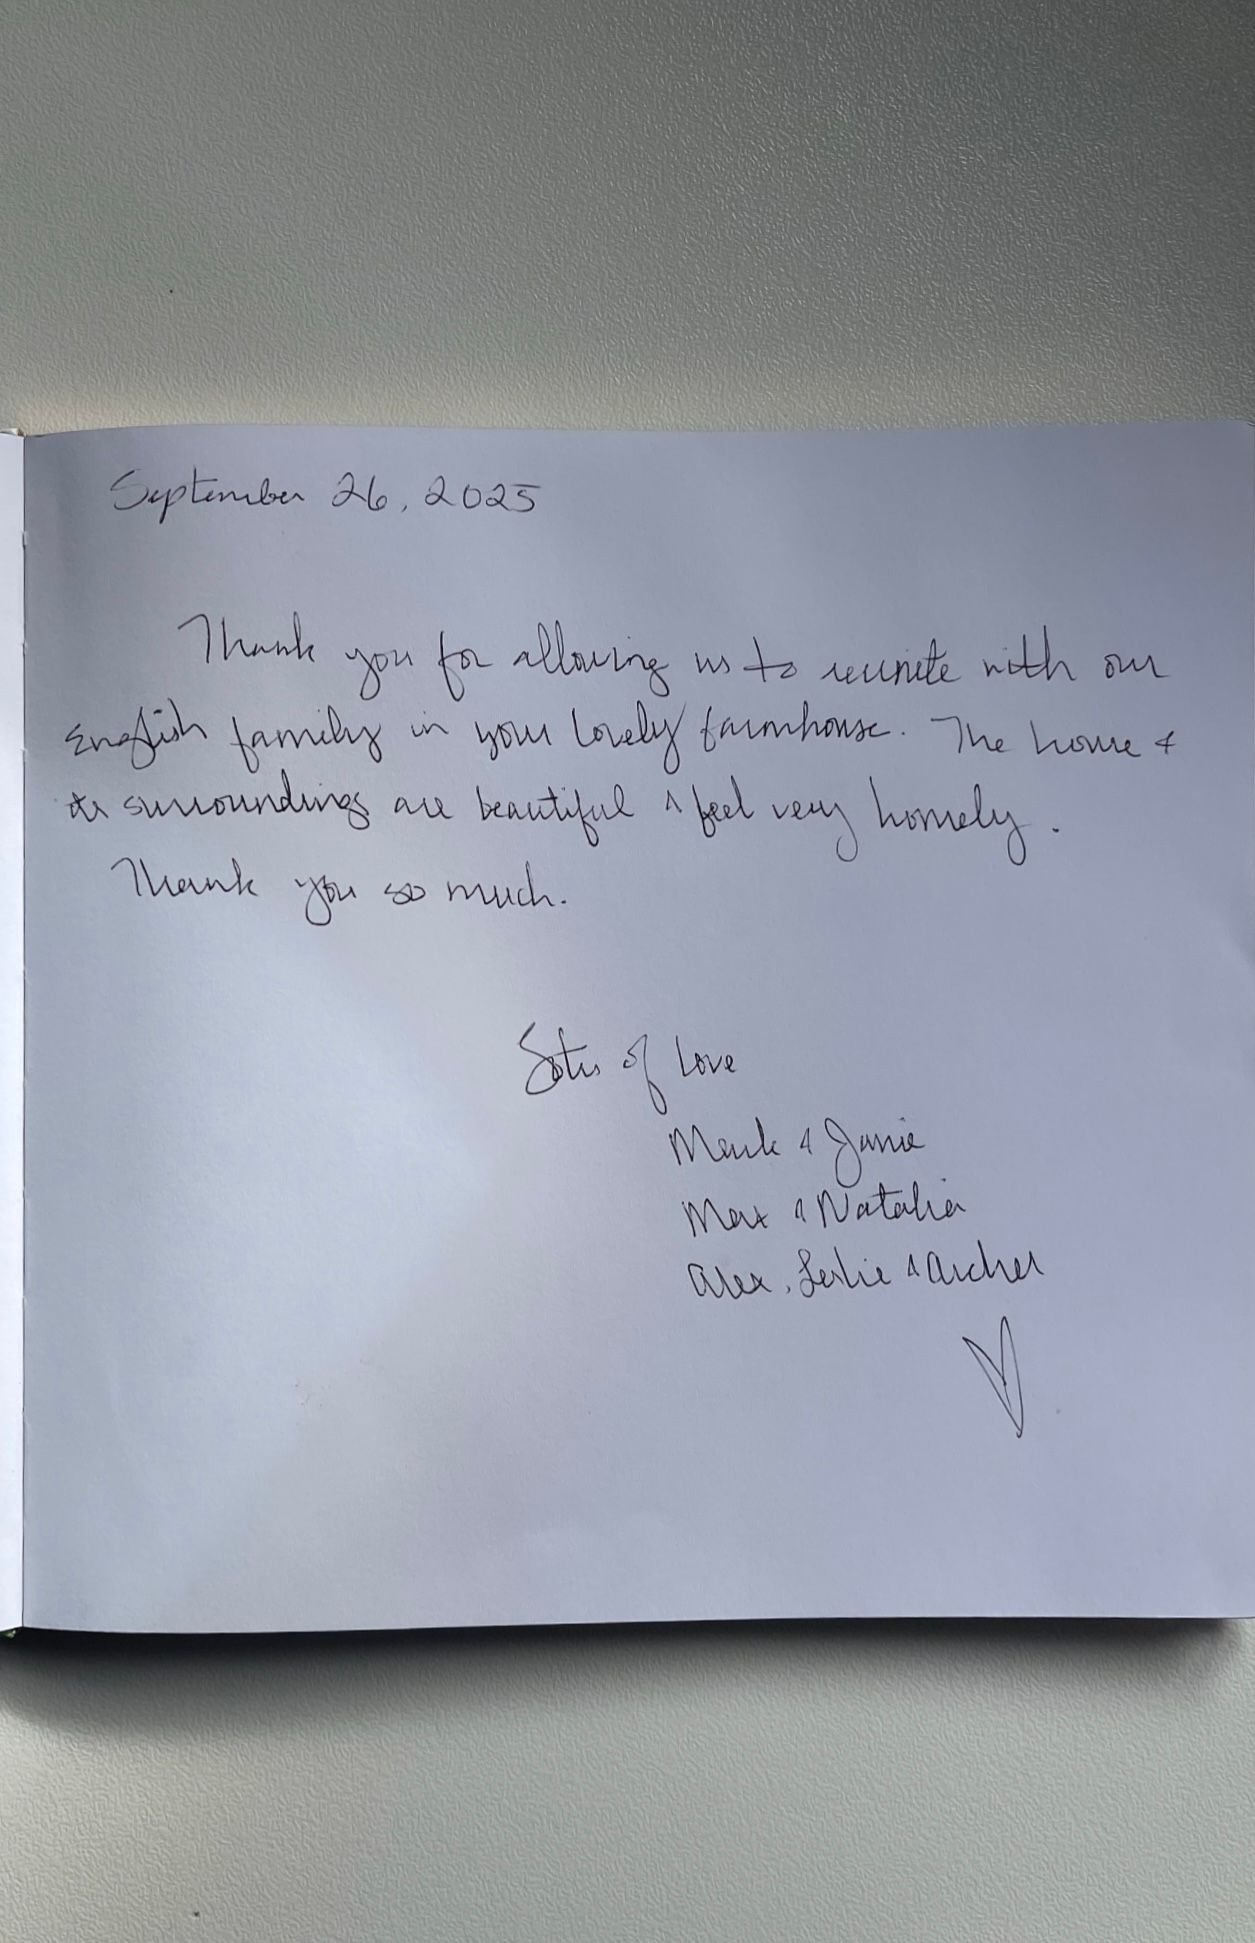 September 26, 2025
Thank you for allowing us to reunite with our
English family in your lovely farmhouse. The house &
its surroundings are beautiful & feel very homely.
Thank you so much.
of Love
Mark & Janie
Max & Natalia
Alex, Leslie & Archer